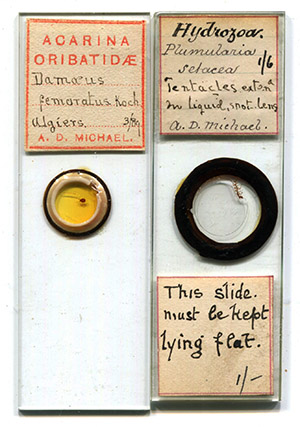 ACARINA
ORIBATIDÆ
Damæus
femoratus Koch.
Algiers. 3/89
A. D. MICHAEL.
Hydrozoa.
Plumularia
setacea 1/6
Tentacles extend
in liquid, spot lens
A. D. Michael.
This slide.
must be kept
lying flat.
1/-